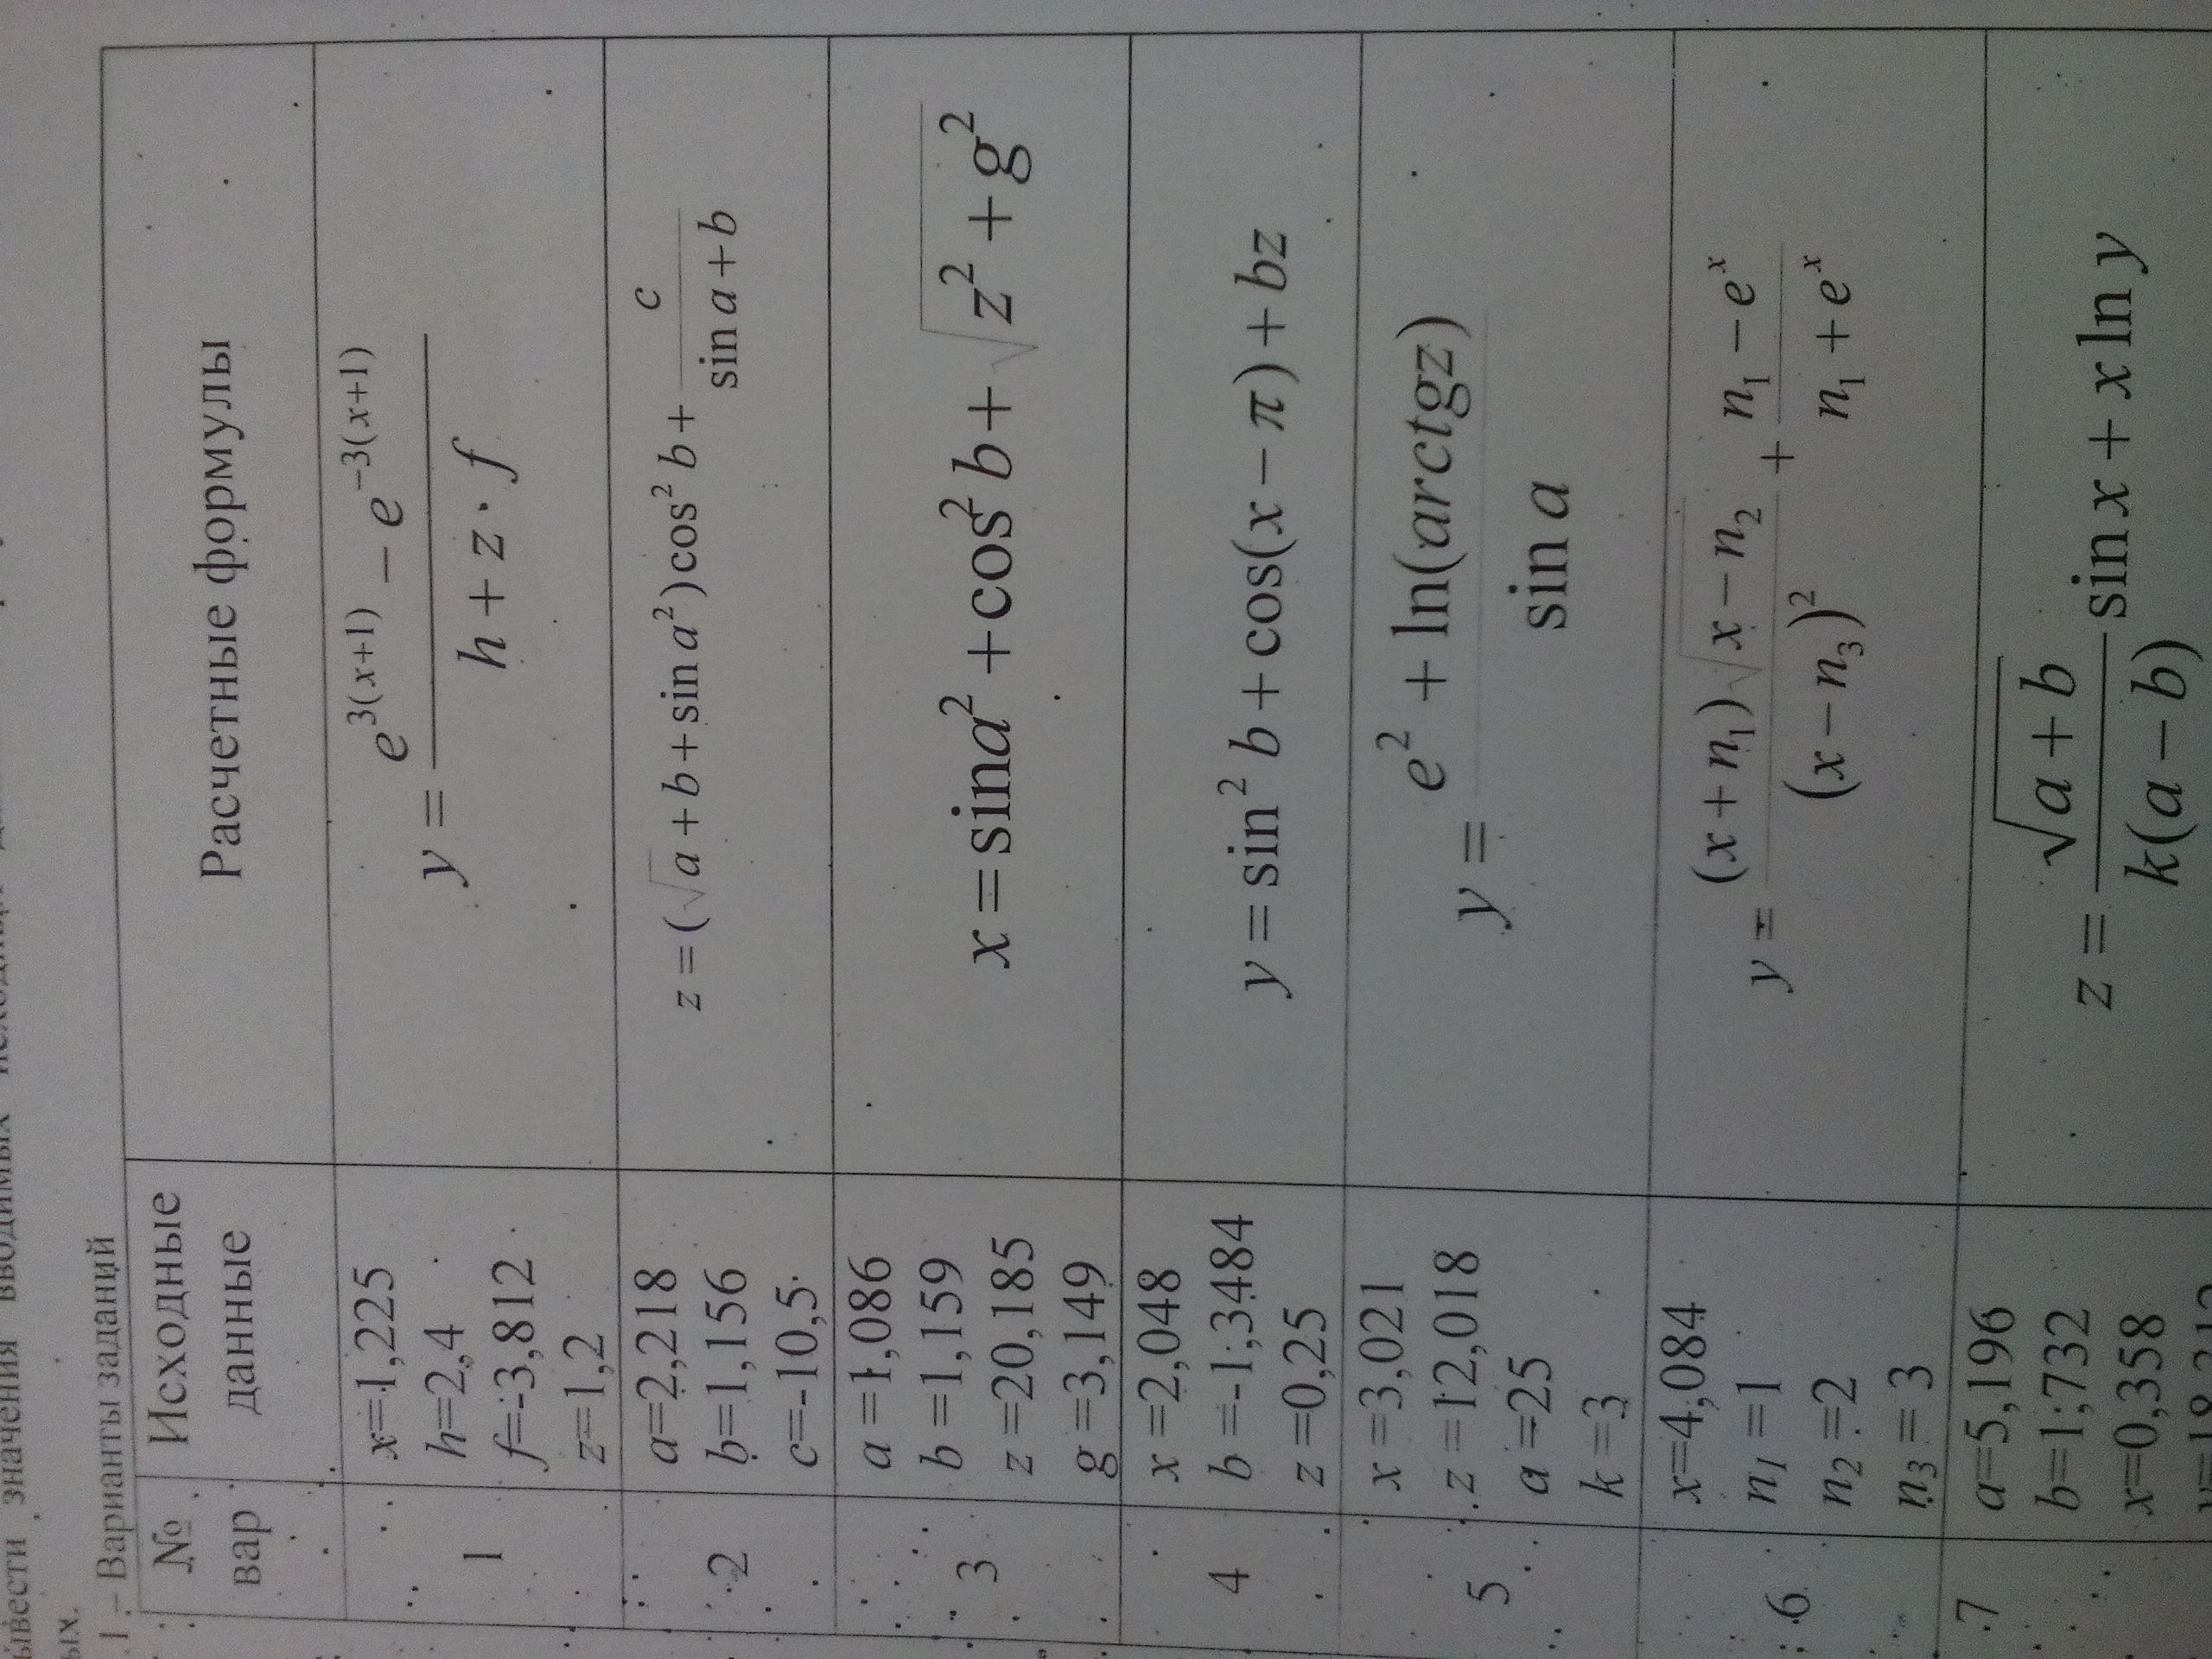 ывести значения вводимых
ых.
1 – Варианты заданий
№ вар
Исходные данные
Расчетные формулы
1
x=1,225
h=2,4
f=-3,812
z=1,2
y = (e^{3(x+1)} − e^{−3(x+1)}) / (h + z · f)
2
a=2,218
b=1,156
c=-10,5
z = (√a + b + sin a²) cos² b + c / (sin a + b)
3
a =1,086
b =1,159
z =20,185
g =3,149
x = sin a² + cos² b + √(z² + g²)
4
x =2,048
b =-1,3484
z =0,25
y = sin² b + cos(x − π) + bz
5
x =3,021
z =12,018
a =25
k =3
y = (e² + ln(arctgz)) / sin a
6
x=4,084
n₁ =1
n₂ =2
n₃ = 3
y = ((x + n₁)√(x − n₂)) / (x − n₃)² + (n₁ − eˣ) / (n₁ + eˣ)
7
a=5,196
b=1,732
x=0,358
z = √(a + b) / (k(a − b)) sin x + x ln y